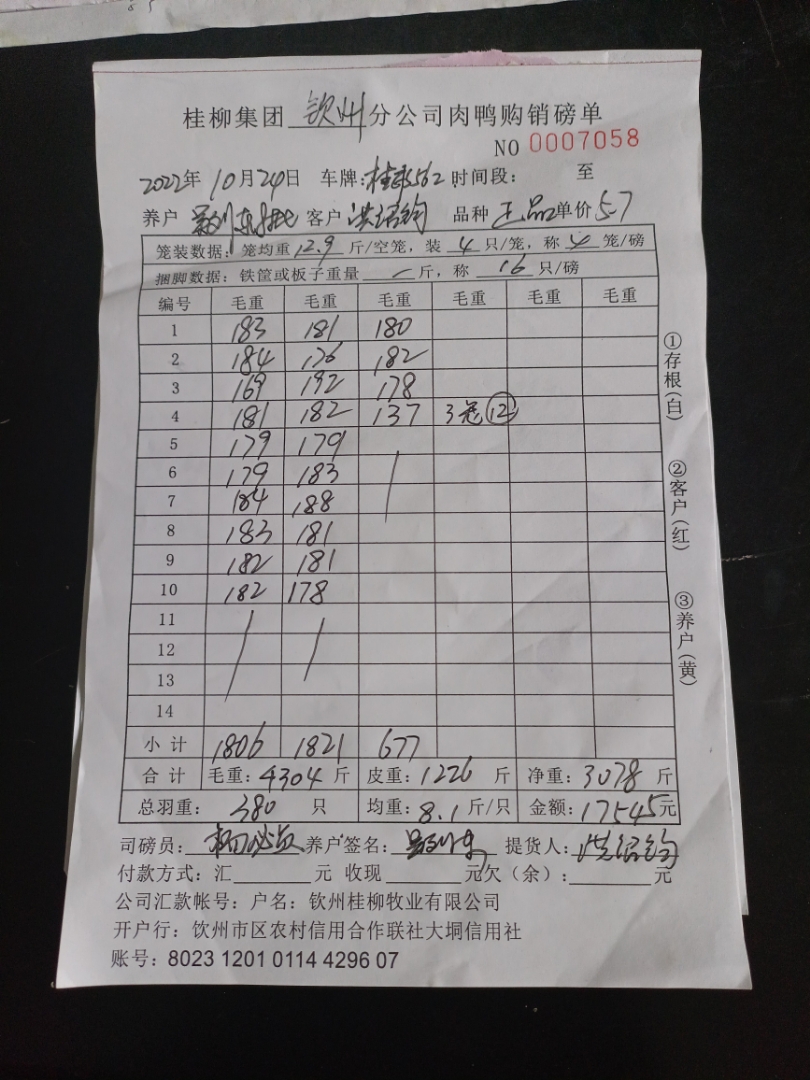 桂柳集团 钦州 分公司肉鸭购销磅单
NO 0007058
2022年 10月24日 车牌: 562 时间段: 至
养户 客户 洪绍钧 品种 正品 单价 5.7
笼装数据: 笼均重 12.9 斤/空笼, 装 4 只/笼, 称 4 笼/磅
捆脚数据: 铁筐或板子重量 / 斤, 称 16 只/磅
编号 毛重 毛重 毛重 毛重 毛重 毛重
1 183 181 180
2 184 176 182
3 169 192 178
4 181 182 137 3笼 ⑫
5 179 179
6 179 183
7 184 188
8 183 181
9 182 181
10 182 178
11
12
13
14
小计 1806 1821 677
合计 毛重: 4304 斤 皮重: 1226 斤 净重: 3078 斤
总羽重: 380 只 均重: 8.1 斤/只 金额: 17545元
司磅员: 养户签名: 提货人: 洪绍钧
付款方式: 汇 元 收现 元欠(余): 元
公司汇款帐号: 户名: 钦州桂柳牧业有限公司
开户行: 钦州市区农村信用合作联社大垌信用社
账号: 8023 1201 0114 4296 07
①存根(白)
②客户(红)
③养户(黄)